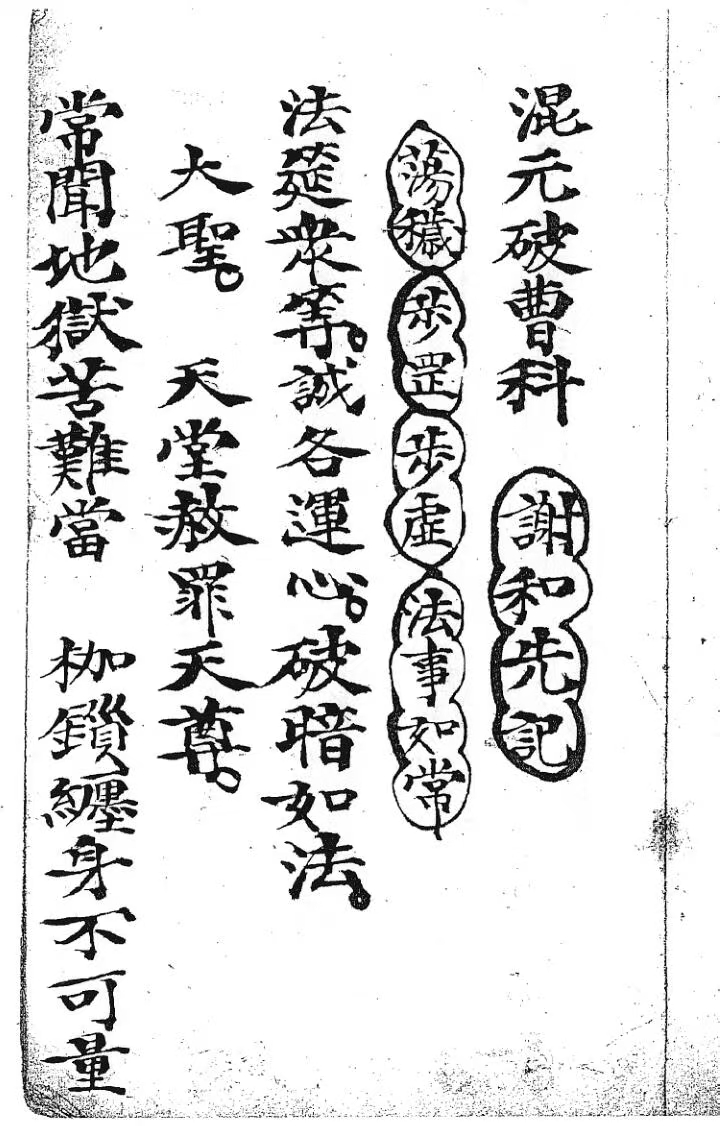 混元破曹科 謝和先記
蕩穢 步罡 步虛 法事如常
法筵衆等。誠各運心。破暗如法。
大聖。 天堂赦罪天尊。
常聞地獄苦難當 枷鎖纏身不可量